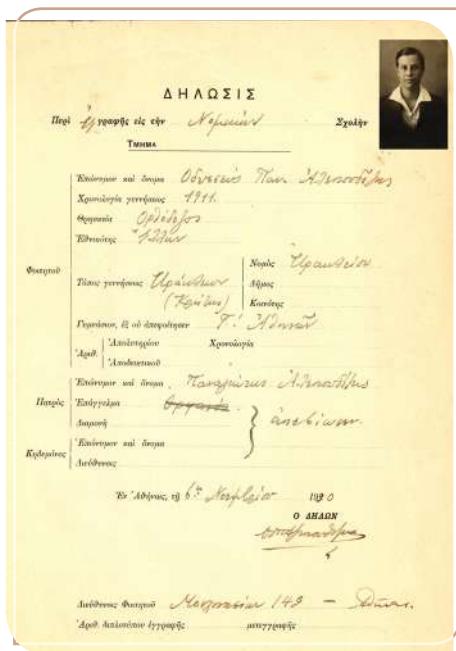 ΔΗΛΩΣΙΣ
Περὶ ἐγγραφῆς εἰς τὴν Νομικὴν Σχολὴν
ΤΜΗΜΑ
Φοιτητοῦ
Ἐπώνυμον καὶ ὄνομα Ὀδυσσεὺς Παν. Ἀλεπουδέλης
Χρονολογία γεννήσεως 1911.
Θρησκεία Ὀρθόδοξος
Ἐθνικότης Ἕλλην
Τόπος γεννήσεως Ἡράκλειον (Κρήτης)
Νομὸς Ἡρακλείου
Δῆμος
Κοινότης
Γυμνάσιον, ἐξ οὗ ἀπεφοίτησεν Γ΄. Ἀθηνῶν
Ἀριθ. Ἀπολυτηρίου Χρονολογία
Ἀποδεικτικοῦ
Πατρὸς
Ἐπώνυμον καὶ ὄνομα Παναγιώτης Ἀλεπουδέλης
Ἐπάγγελμα
Διαμονὴ
ἀπεβίωσεν.
Κηδεμόνος
Ἐπώνυμον καὶ ὄνομα
Διεύθυνσις
Ἐν Ἀθήναις, τῇ 6ῃ Νοεμβρίου 1930
Ο ΔΗΛΩΝ
Διεύθυνσις Φοιτητοῦ 148 –
Ἀριθ. διπλοτύπου ἐγγραφῆς μετεγγραφῆς